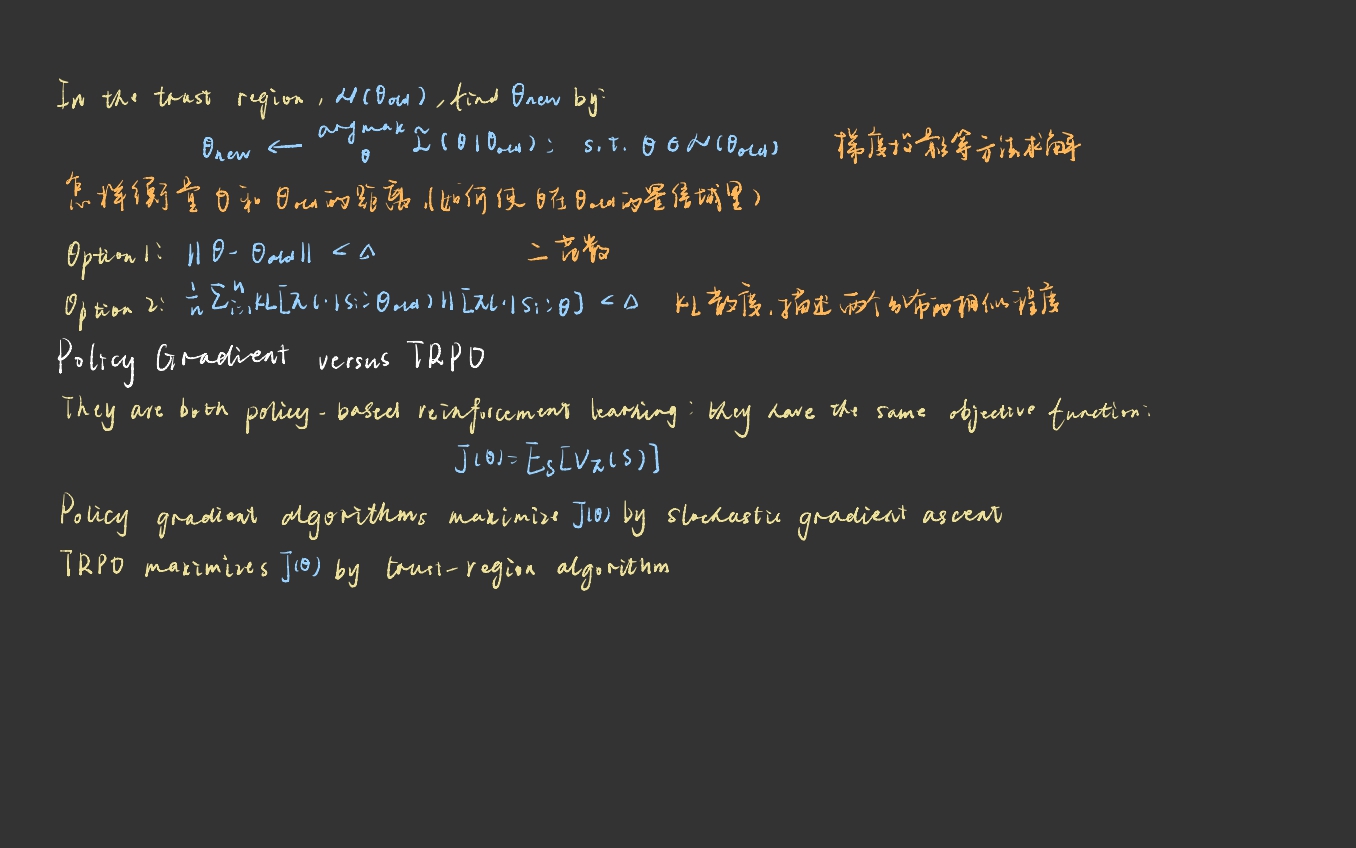 In the trust region, N(θold), find θnew by:
θnew ← argmax θ L̃(θ|θold); s.t. θ∈N(θold) 梯度投影等方法求解
怎样衡量θ和θold的距离(如何使θ在θold的置信域里)
Option 1: ||θ - θold|| < Δ 二范数
Option 2: 1/n Σⁿᵢ₌₁ KL[π(·|Si;θold)||[π(·|Si;θ] < Δ KL散度,描述两个分布的相似程度
Policy Gradient versus TRPO
They are both policy-based reinforcement learning: they have the same objective function:
J(θ)=Es[Vπ(S)]
Policy gradient algorithms maximize J(θ) by stochastic gradient ascent
TRPO maximizes J(θ) by trust-region algorithm